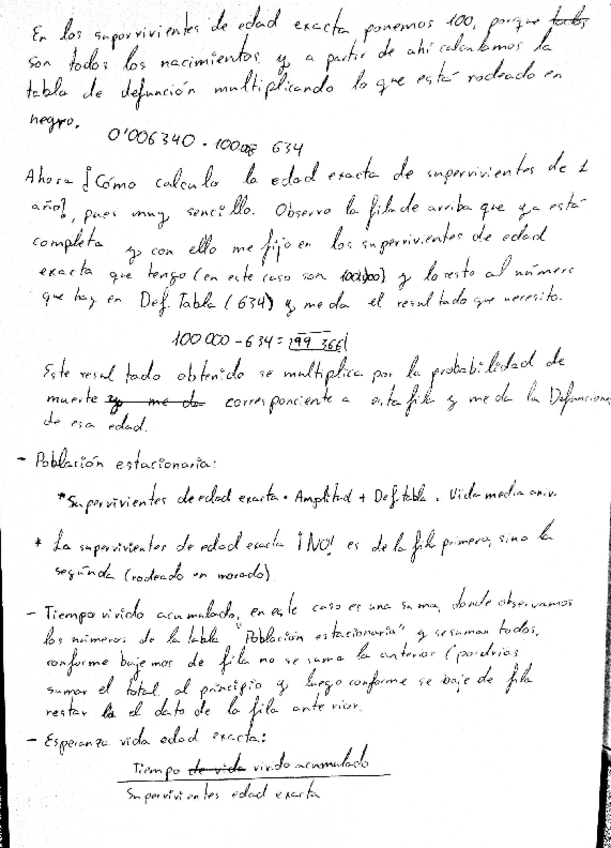 En los supervivientes de edad exacta ponemos 100, porque todos
son todos los nacimientos y a partir de ahí calculamos la
tabla de defunción multiplicando lo que está rodeado en
negro.
0'006340 · 100000 = 634
Ahora ¿Cómo calculo la edad exacta de supervivientes de 1
año?, pues muy sencillo. Observo la fila de arriba que ya está
completa y con ello me fijo en los supervivientes de edad
exacta que tengo (en este caso son 100000) y lo resto al número
que hay en Def. Tabla (634) y me da el resultado que necesito.
100 000 - 634 = 99 366
Este resultado obtenido se multiplica por la probabilidad de
muerte y me da correspondiente a esta fila y me da la Defunciones
de esa edad.
- Población estacionaria:
*Supervivientes de edad exacta · Amplitud + Def. tabla · Vida media aniv.
* La supervivientes de edad exacta ¡NO! es de la fila primera, sino la
segunda (rodeado en morado)
- Tiempo vivido acumulado, en este caso es una suma, donde observamos
los números de la tabla "Población estacionaria" y se suman todos,
conforme bajemos de fila no se suma la anterior (podrías
sumar el total al principio y luego conforme se baje de fila
restar el dato de la fila anterior.
- Esperanza vida edad exacta:
Tiempo de vida vivido acumulado
Supervivientes edad exacta